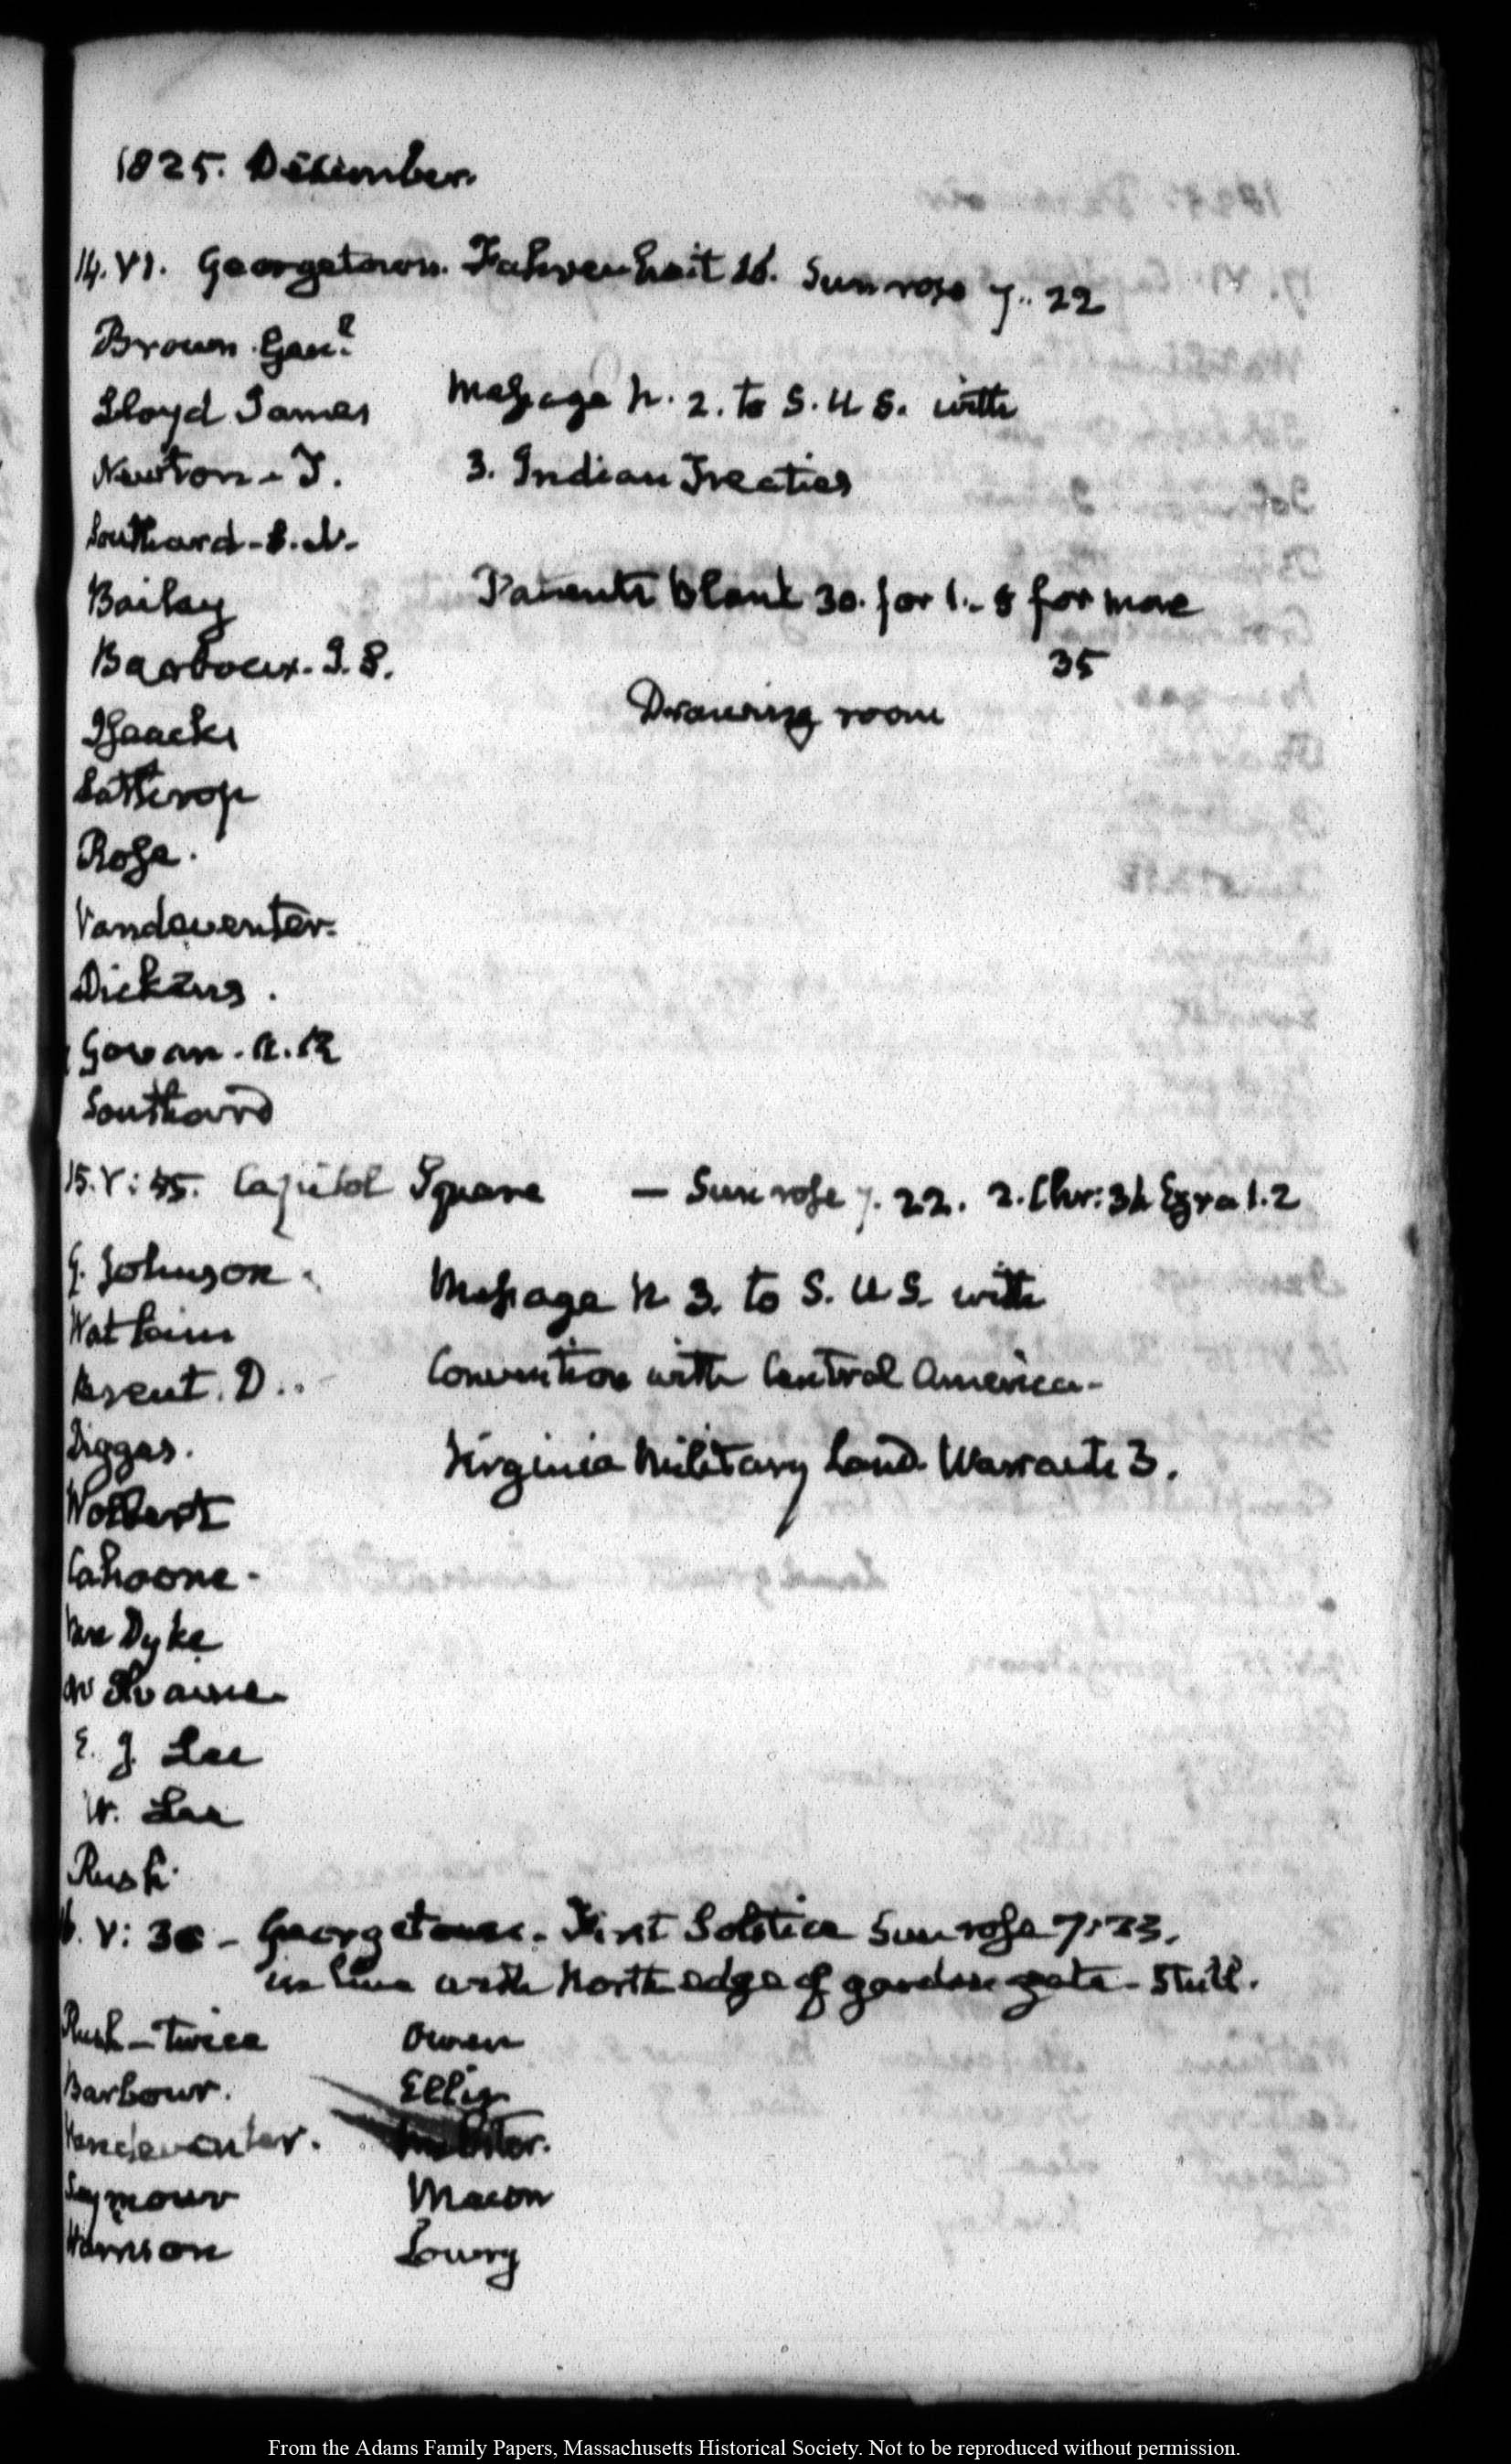 1825. December.
14. VI. Georgetown. Fahrenheit 26. Sun rose 7.. 22
Brown. Genl.
Lloyd James
Message N. 2. to S. U S. with
Newton - T.
3. Indian Treaties
Southard - S. N.
Bailey
Patents blank 30. for 1. - 5 for more
35
Barbour. J. S.
Drawing room
Isaacks
Lathrop
Rose.
Vandeventer.
Dickins.
Govan. A. R
Southard
15. V: 45. Capitol Square — Sun rose 7. 22. 2. Chr: 36 Ezra 1. 2
Johnson
Message N 3. to S. U S. with
Watkins
Convention with Central America -
Brent. D..
Diggas.
Virginia Military Land. Warrants 3.
Wolbert
Cahoone -
Van Dyke
E. J. Lee
W. Lee
Rush.
16. V: 30 - Georgetown. First Solstice Sun rose 7: 23.
in line with North edge of garden gate - Still.
Rush - twice Owen
Barbour. Ellis
Vandeventer. Webster.
Seymour Macon
Harrison Lowry
From the Adams Family Papers, Massachusetts Historical Society. Not to be reproduced without permission.